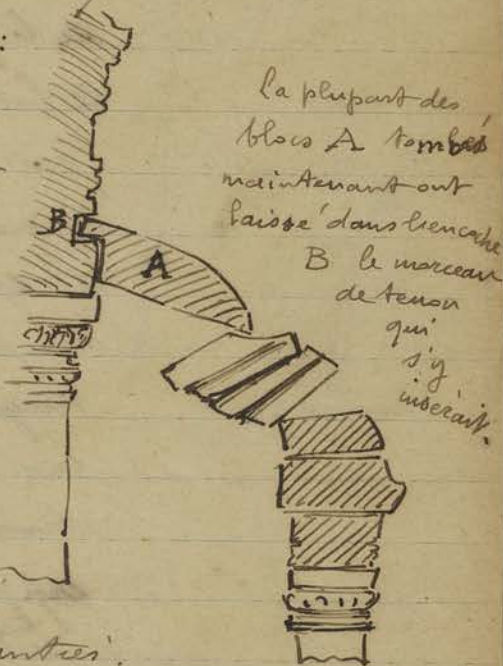 :
La plupart des
blocs A tombés
maintenant ont
laissé dans l'encoche
B le morceau
de tenon
qui
s'y
insérait.
B
A